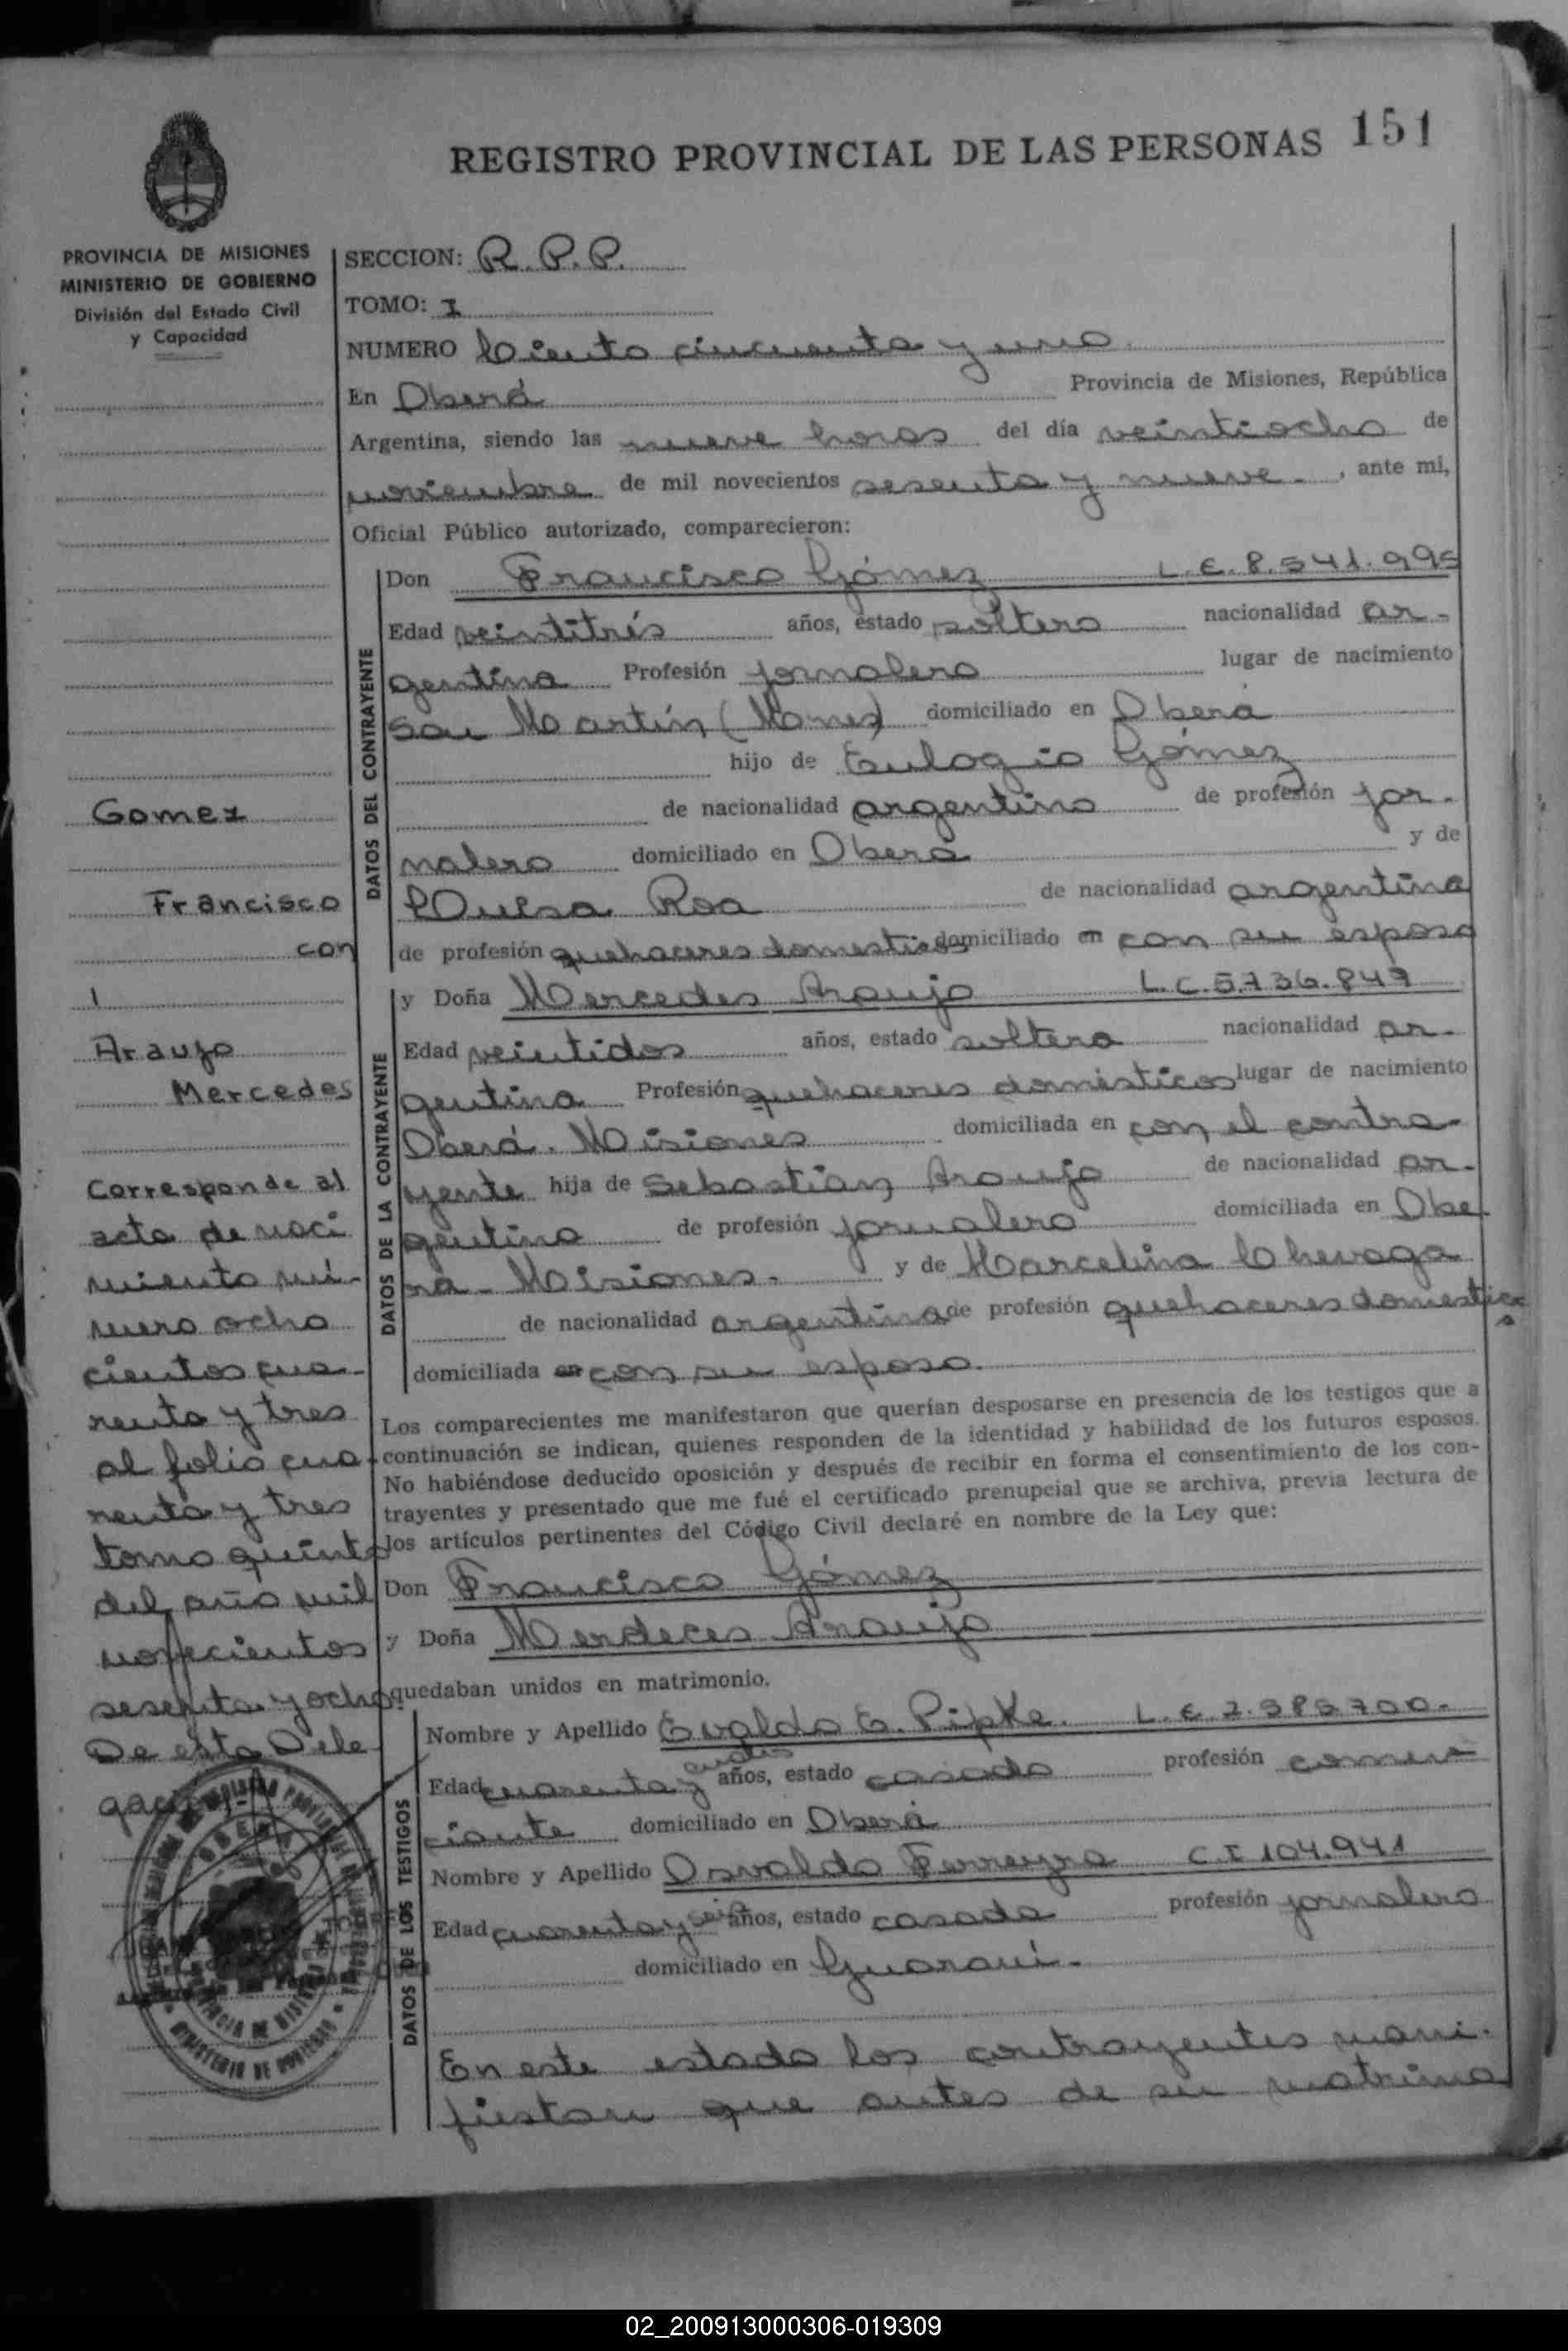 REGISTRO PROVINCIAL DE LAS PERSONAS 151
PROVINCIA DE MISIONES
MINISTERIO DE GOBIERNO
División del Estado Civil
y Capacidad
SECCION: R. P. P.
TOMO: I
NUMERO Ciento cincuenta y uno.
En Oberá Provincia de Misiones, República
Argentina, siendo las nueve horas del día veintiocho de
noviembre de mil novecientos sesenta y nueve. , ante mi,
Oficial Público autorizado, comparecieron:
DATOS DEL CONTRAYENTE
Don Francisco Gómez L.E. 8.541.995
Edad veintitrés años, estado soltero nacionalidad ar-
gentina Profesión jornalero lugar de nacimiento
San Martín (Mnes) domiciliado en Oberá
hijo de Eulogio Gómez
de nacionalidad argentino de profesión jor-
nalero domiciliado en Oberá y de
Roa de nacionalidad argentina
de profesión quehaceres domesticos domiciliado en con su esposo
DATOS DE LA CONTRAYENTE
y Doña Mercedes Araujo L.C. 5.736.847
Edad veintidos años, estado soltera nacionalidad ar-
gentina Profesión quehaceres domésticos lugar de nacimiento
Oberá. Misiones domiciliada en con el contra-
yente hija de Sebastián Araujo de nacionalidad ar-
gentino de profesión jornalero domiciliada en Obe
rá - Misiones. y de Marcelina Chevaga
de nacionalidad argentina de profesión quehaceres domestico
s
domiciliada en con su esposo.
Los comparecientes me manifestaron que querían desposarse en presencia de los testigos que a
continuación se indican, quienes responden de la identidad y habilidad de los futuros esposos.
No habiéndose deducido oposición y después de recibir en forma el consentimiento de los con-
trayentes y presentado que me fué el certificado prenupcial que se archiva, previa lectura de
los artículos pertinentes del Código Civil declaré en nombre de la Ley que:
Don Francisco Gómez
y Doña Merdeces Araujo
quedaban unidos en matrimonio.
DATOS DE LOS TESTIGOS
Nombre y Apellido Evaldo E. Pipke. L.E. 7.585.700.
Edad cuarenta y años, estado casado profesión comer
ciante domiciliado en Oberá
Nombre y Apellido Osvaldo Ferreyra C.I 104.941
Edad cuarenta y seis años, estado casado profesión jornalero
domiciliado en Guaraní.
En este estado los contrayentes mani-
fiestan que antes de su matrimo
Gomez
Francisco
con
Araujo
Mercedes
Corresponde al
acta de naci
miento nú-
mero ocho
cientos cua-
renta y tres
al folio cua-
renta y tres
tomo quinto
del año mil
novecientos
sesenta y ocho.
De esta Dele
gación.-
02_200913000306-019309